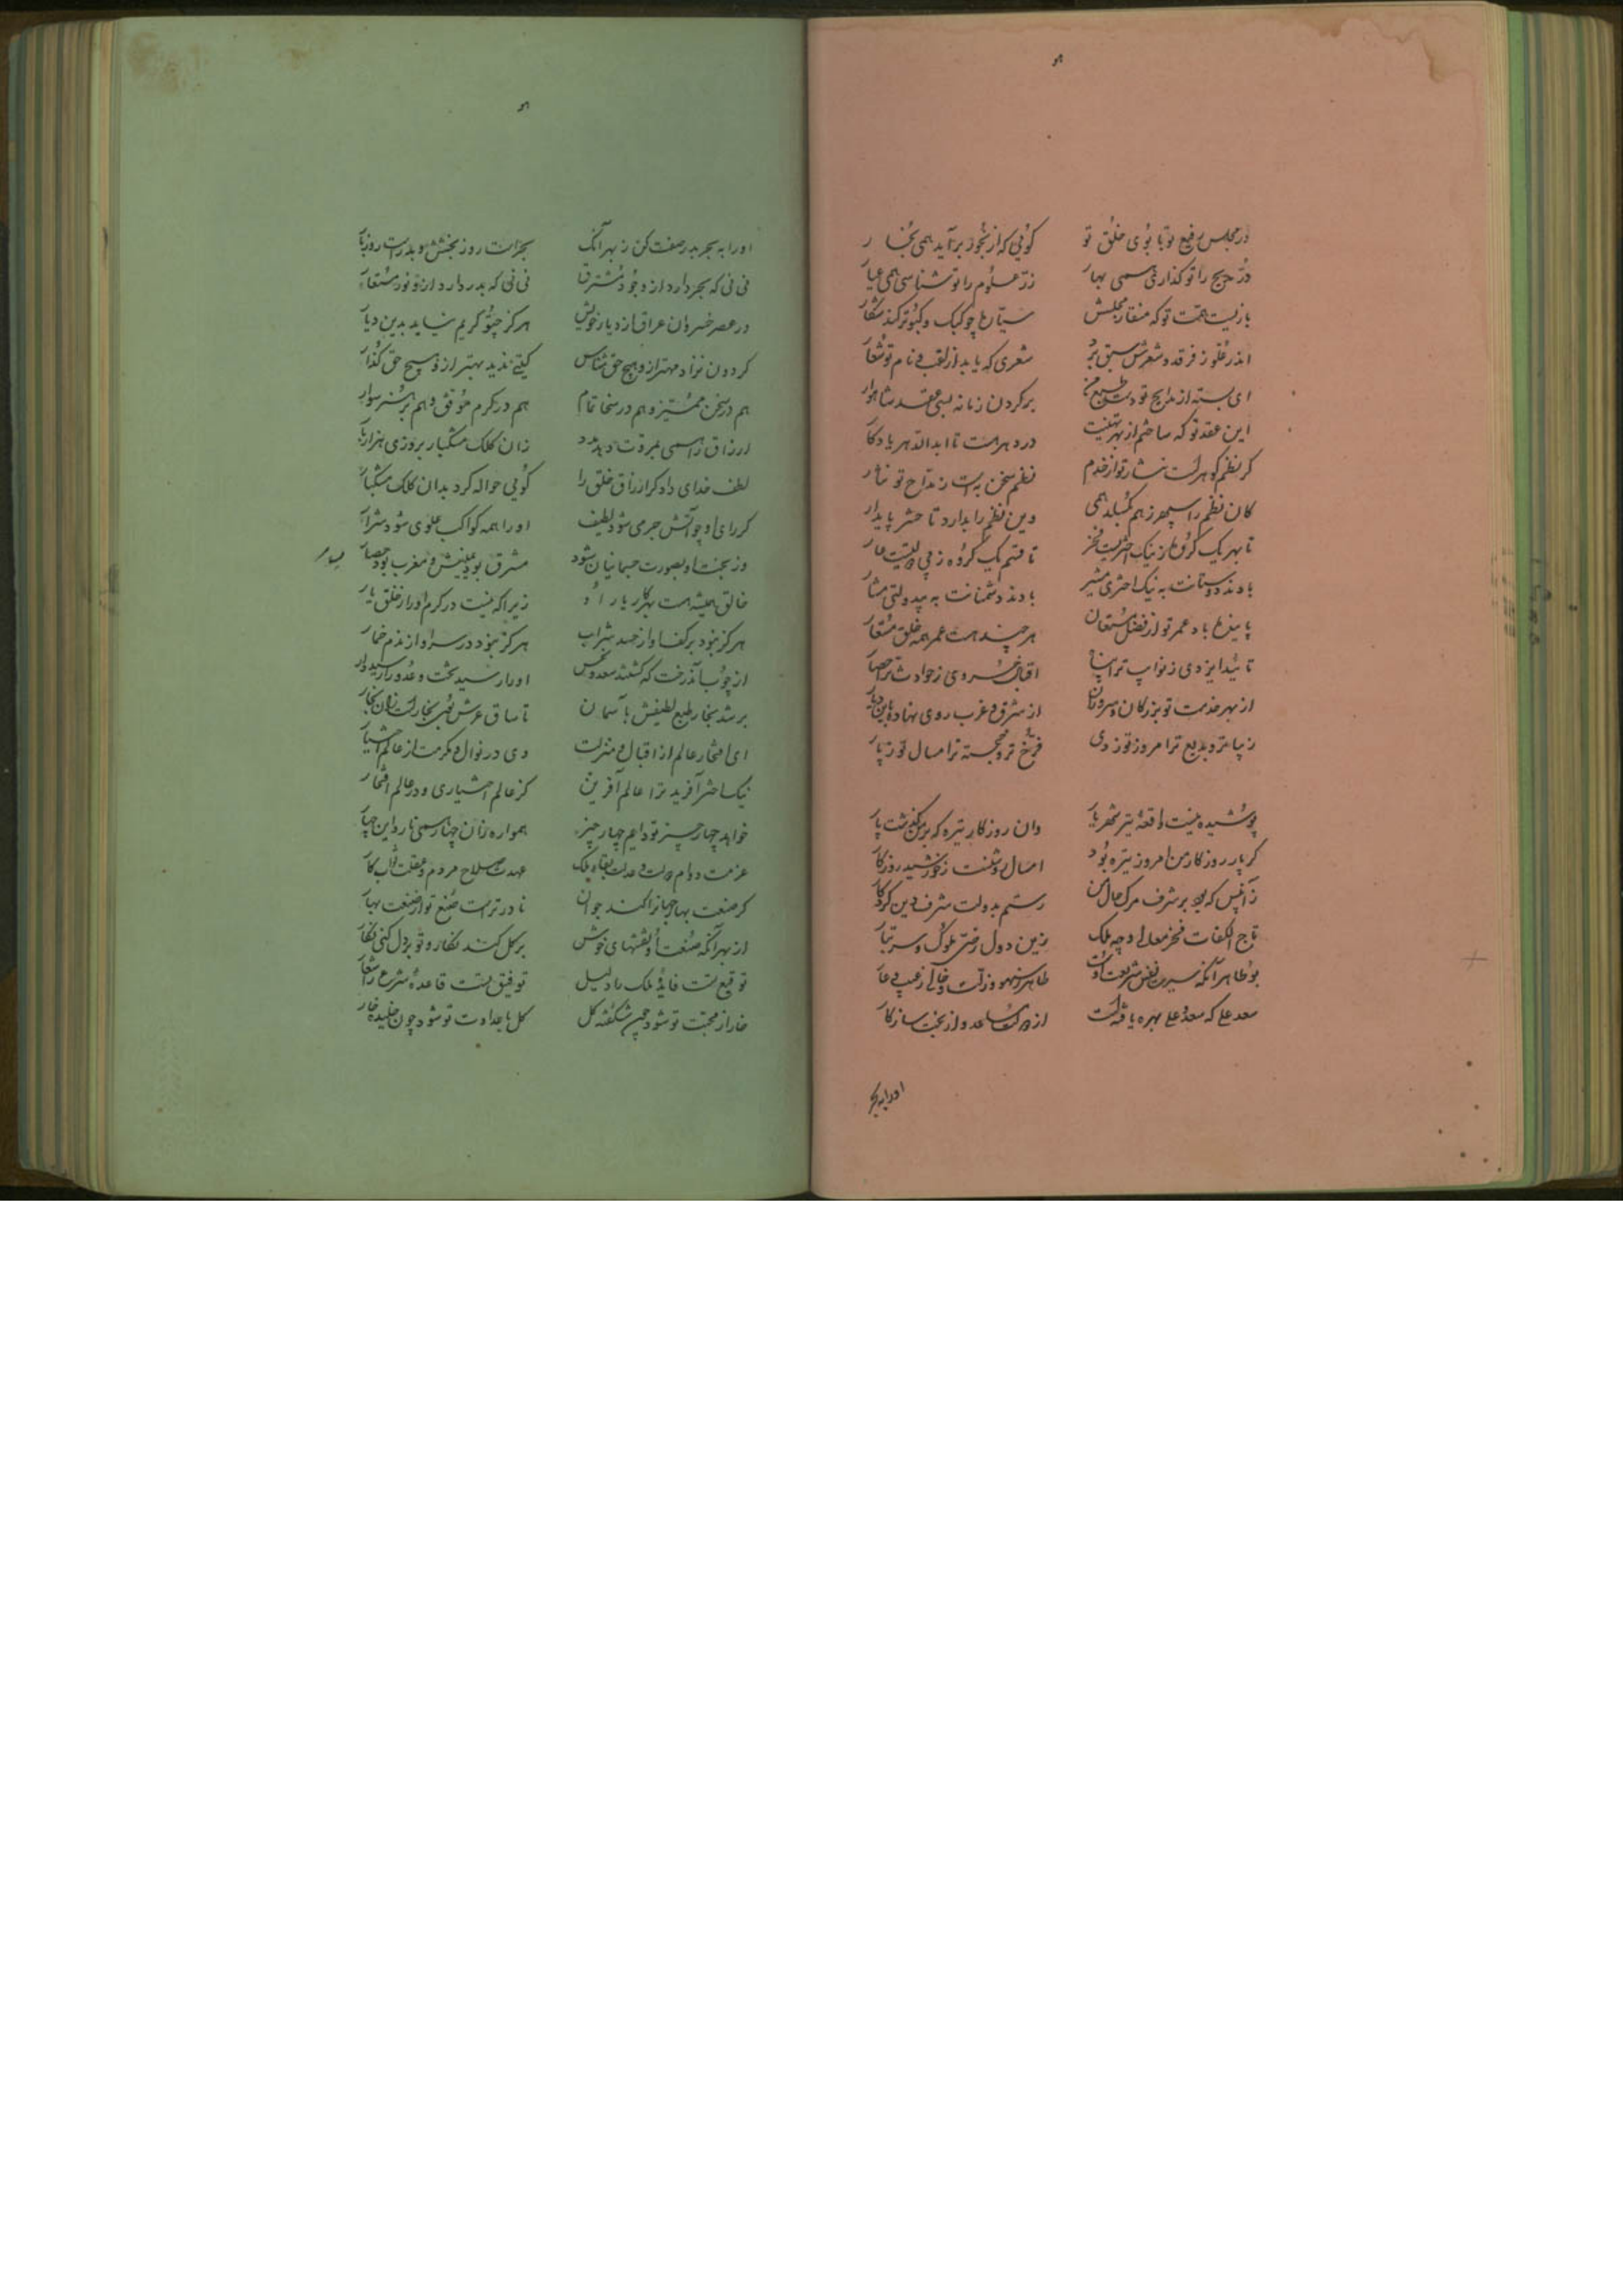 هو
در مجلس رفیع تو با بوی خلق تو گوئی که از بخور برآید همی بخار
درّ مدیح را تو گذاری همی بها زرّ علوم را تو شناسی همی عیار
بازیست همت تو که منقار مجلسش
اندر علو ز فرقد و شعرش سبق برد شعری که یابد از لقب و نام تو شعار
ای بسته از مدایح تو دست طبع من بر گردن زمانه بسی عقد شاهوار
این عقد نو که ساختم از بهر تهنیت در دهر هست تا ابد الدهر یادگار
نظم سخن به است ز مداح تو نثار
کان نظم را سپهر ز هم بگسلد همی وین نظم را بدارد تا حشر پایدار
تا بهر یک گروه ز نیک اختریست فخر تا قسم یک گروه ز بی دولتیست عار
بادند دوستانت به نیک اختری مشیر بادند دشمنانت به بیدولتی مشار
پاینده باد عمر تو از فضل مستعان هر چند هست عمر همه خلق مستعار
تأیید ایزدی ز نوایب ترا پناه اقبال خسروی ز حوادث ترا حصار
از بهر خدمت تو بزرگان و سروران از مشرق و مغرب روی نهاده باین دیار
زیباتر و بدیع ترا امروز تو ز دی فرخ تر و خجسته ترا امسال تو ز پار
پوشیده نیست واقعه تیر شهریار وان روزگار تیره که بر من گذشت پار
گر پار روزگار من امروز تیره بود امسال روشنست ز خورشید روزگار
زآنپس که بود بر شرف مرگ حال من رستم بدولت شرف دین کردگار
تاج الکفات فخر معالی وجیه ملک زین دول رضی ملوک و سر تبار
بوطاهر آنکه سیرت و نفس شریف اوست طاهر ز سهو و زلت و خالی ز عیب و عار
سعد علی که سعد و علی بهره یافتست از دولت مساعد و از بخت سازگار
او را به بحر
هو
او را به بحر و بدر صفت کن ز بهر آنک بحرست روز بخشش و بدرست روز بار
نی نی که بحر دارد از وجود مسترق نی نی که بدر دارد از او نور مستعار
در عصر خسروان عراق از دیار خویش هرگز چنو کریم نیامد بدین دیار
گردون نزاد مهتر از او هیچ حق شناس گیتی ندید بهتر از او هیچ حق گذار
هم در سخن ممیز و هم در سخا تمام هم در کرم موفق و هم بر هنر سوار
ارزاق را همی بمروت دهد مدد زان کلک مشکبار بروزی هزار بار
لطف خدای دادگر ارزاق خلق را گوئی حواله کرد بدان کلک مشکبار
گر رای او چو آتش جرمی شود لطیف او را همه کواکب علوی شود شرار
ور بخت او بصورت جسمانیان شود مشرق بود یمینش و مغرب بود یسار
خالق همیشه هست بهر کار یار او زیرا که نیست در کرم او را ز خلق یار
هرگز نبود بر کف او از حسد شراب هرگز نبود در سر او از ندم خمار
او را رسید تخت و عدو را رسید دار
بر شد بخار طبع لطیفش بآسمان تا ساق عرش
ای افتخار عالم از اقبال و منزلت وی در نوال و مکرمت از عالم اختیار
نیک اختر آفرید ترا عالم آفرین کز عالم اختیاری و در عالم افتخار
خواهد چهار چیز تو دایم چهار چیز همواره زان چهار همی نازد این چهار
عزمت دوام دولت و عدلت بقاء ملک عهدت صلاح مردم و عقلت ثواب کار
گر صنعت بهار جهان را کند جوان نادرترست صنع تو از صنعت بهار
از بهر آنکه صنعت او نقشهای خوش بر گل کند نگار و تو بر دل کنی نگار
توقیع تست فایده ملک را دلیل توفیق تست قاعده شرع را شعار
خار از محبت تو شود چون شکفته گل گل با عداوت تو شود چون خلیده خار